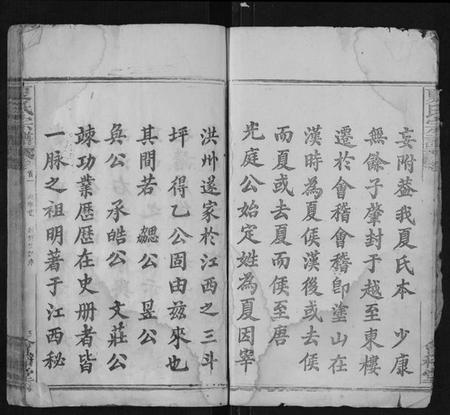 妄附益我夏氏本 少康
無餘子肇封于越至東樓
遷於會稽會稽卽塗山在
漢時為夏侯漢後或去侯
而夏或去夏而侯至唐
光庭公始定姓為夏因宰
洪州遂家於江西之三斗
坪得乙公固由兹來也
其間若 勰公 昱公
奐公 承皓公 文莊公
竦功業歷歷在史册者皆
一脉之祖明著于江西秘